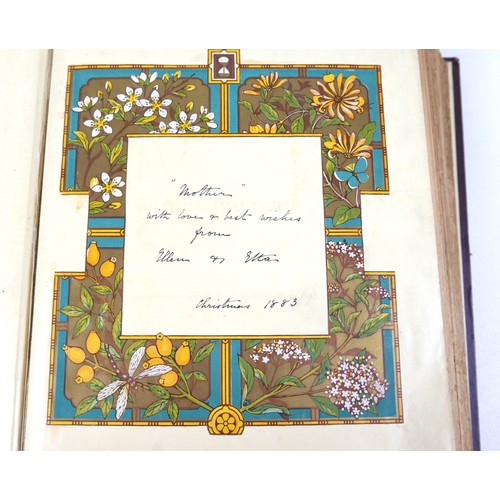 "Mother"
with love & best wishes
from
Ellen & Etta
Christmas 1883